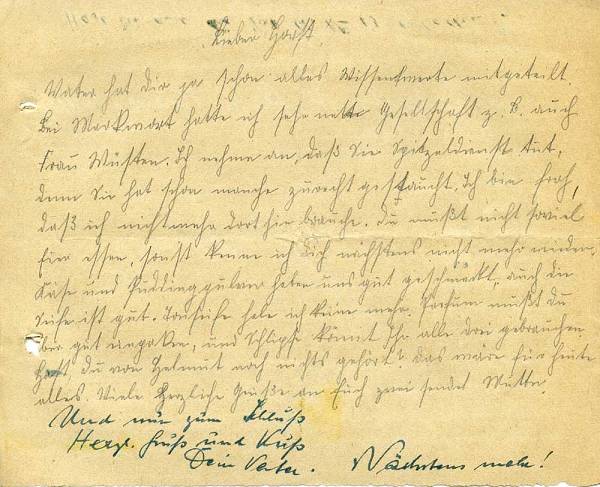 Lieber Horst.
Vater hat dir ja schon alles Wissenswerte mitgeteilt.
Bei Markwort hatte ich sehr nette Gesellschaft z. B. auch
Frau Wüsten. Ich nehme an, daß Sie Spitzeldienst tut,
denn Sie hat schon manche zurecht gestaucht. Ich bin froh,
daß ich nicht mehr dort hin brauche. Du mußt nicht soviel
Eier essen, sonst kenne ich Dich nächstens nicht mehr wieder.
Käse und Puddingpulver haben uns gut geschmeckt, auch die
Seife ist gut. habe ich keine mehr. Parfum mußt du
aber gut einpacken, und Schlipse könnt Ihr alle drei gebrauchen.
Hast du von Helmut noch nichts gehört? das wäre für heute
alles. Viele Herzliche Grüße an Euch zwei sendet Mutter.
Und nun zum Schluß
Herzl. Gruß und Kuß
Dein Vater. Nächstens mehr!